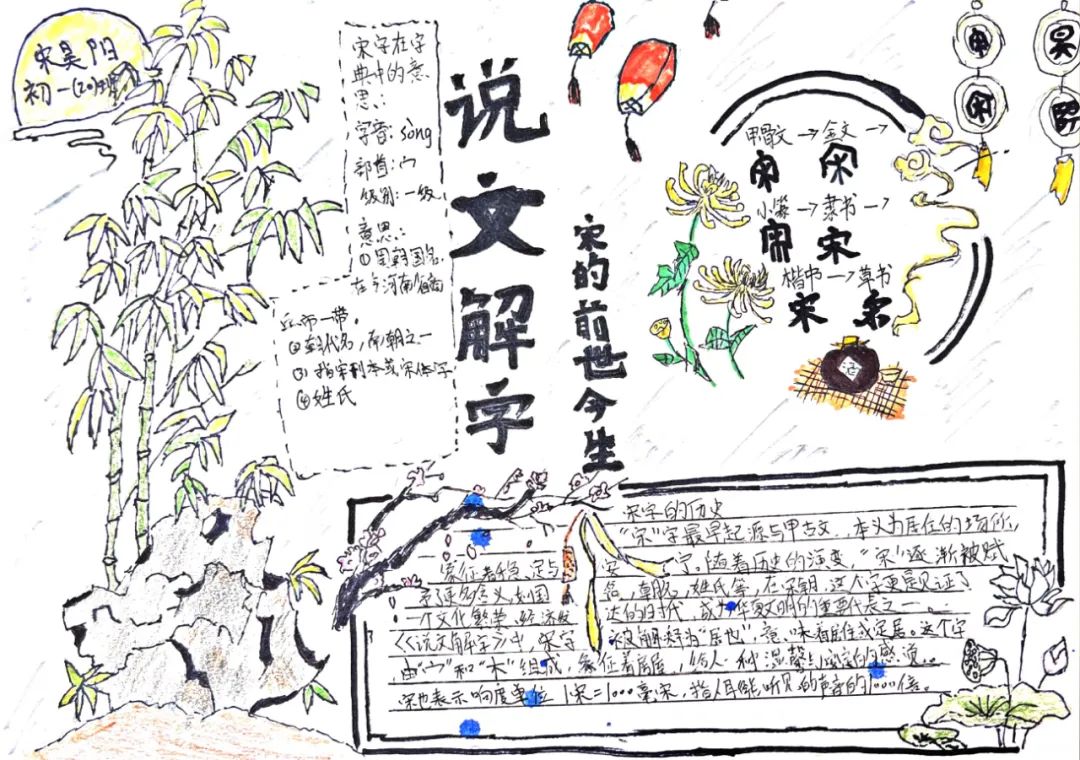 宋昊阳
初一(20)班
宋字在字
典中的意
思:
字音:sòng
部首:宀
级别:一级
意思:
①周朝国名,
在今河南省商
丘市一带。
②朝代名,南朝之一
③指宋刊本或宋体字
④姓氏
说文解字
宋的前世今生
甲骨文→金文→
小篆→隶书→
楷书→草书
宋
酒
宋字的历史
"宋"字最早起源与甲古文,本义为居住的场所,
象征着 足与安宁。随着历史的演变,"宋"逐渐被赋
予了更多含义,如国名,朝代,姓氏等,在宋朝,这个字更是见证了
一个文化繁荣、经济发达的时代,成为华夏文明的重要代表之一。
《说文解字》中,宋字被解释为"居也",意味着居住或定居。这个字
由"宀"和"木"组成,象征着房屋,给人一种温馨与 的感 。
宋也表示响度单位 1宋=1000毫宋,指人耳 能听见的声音的1000倍。